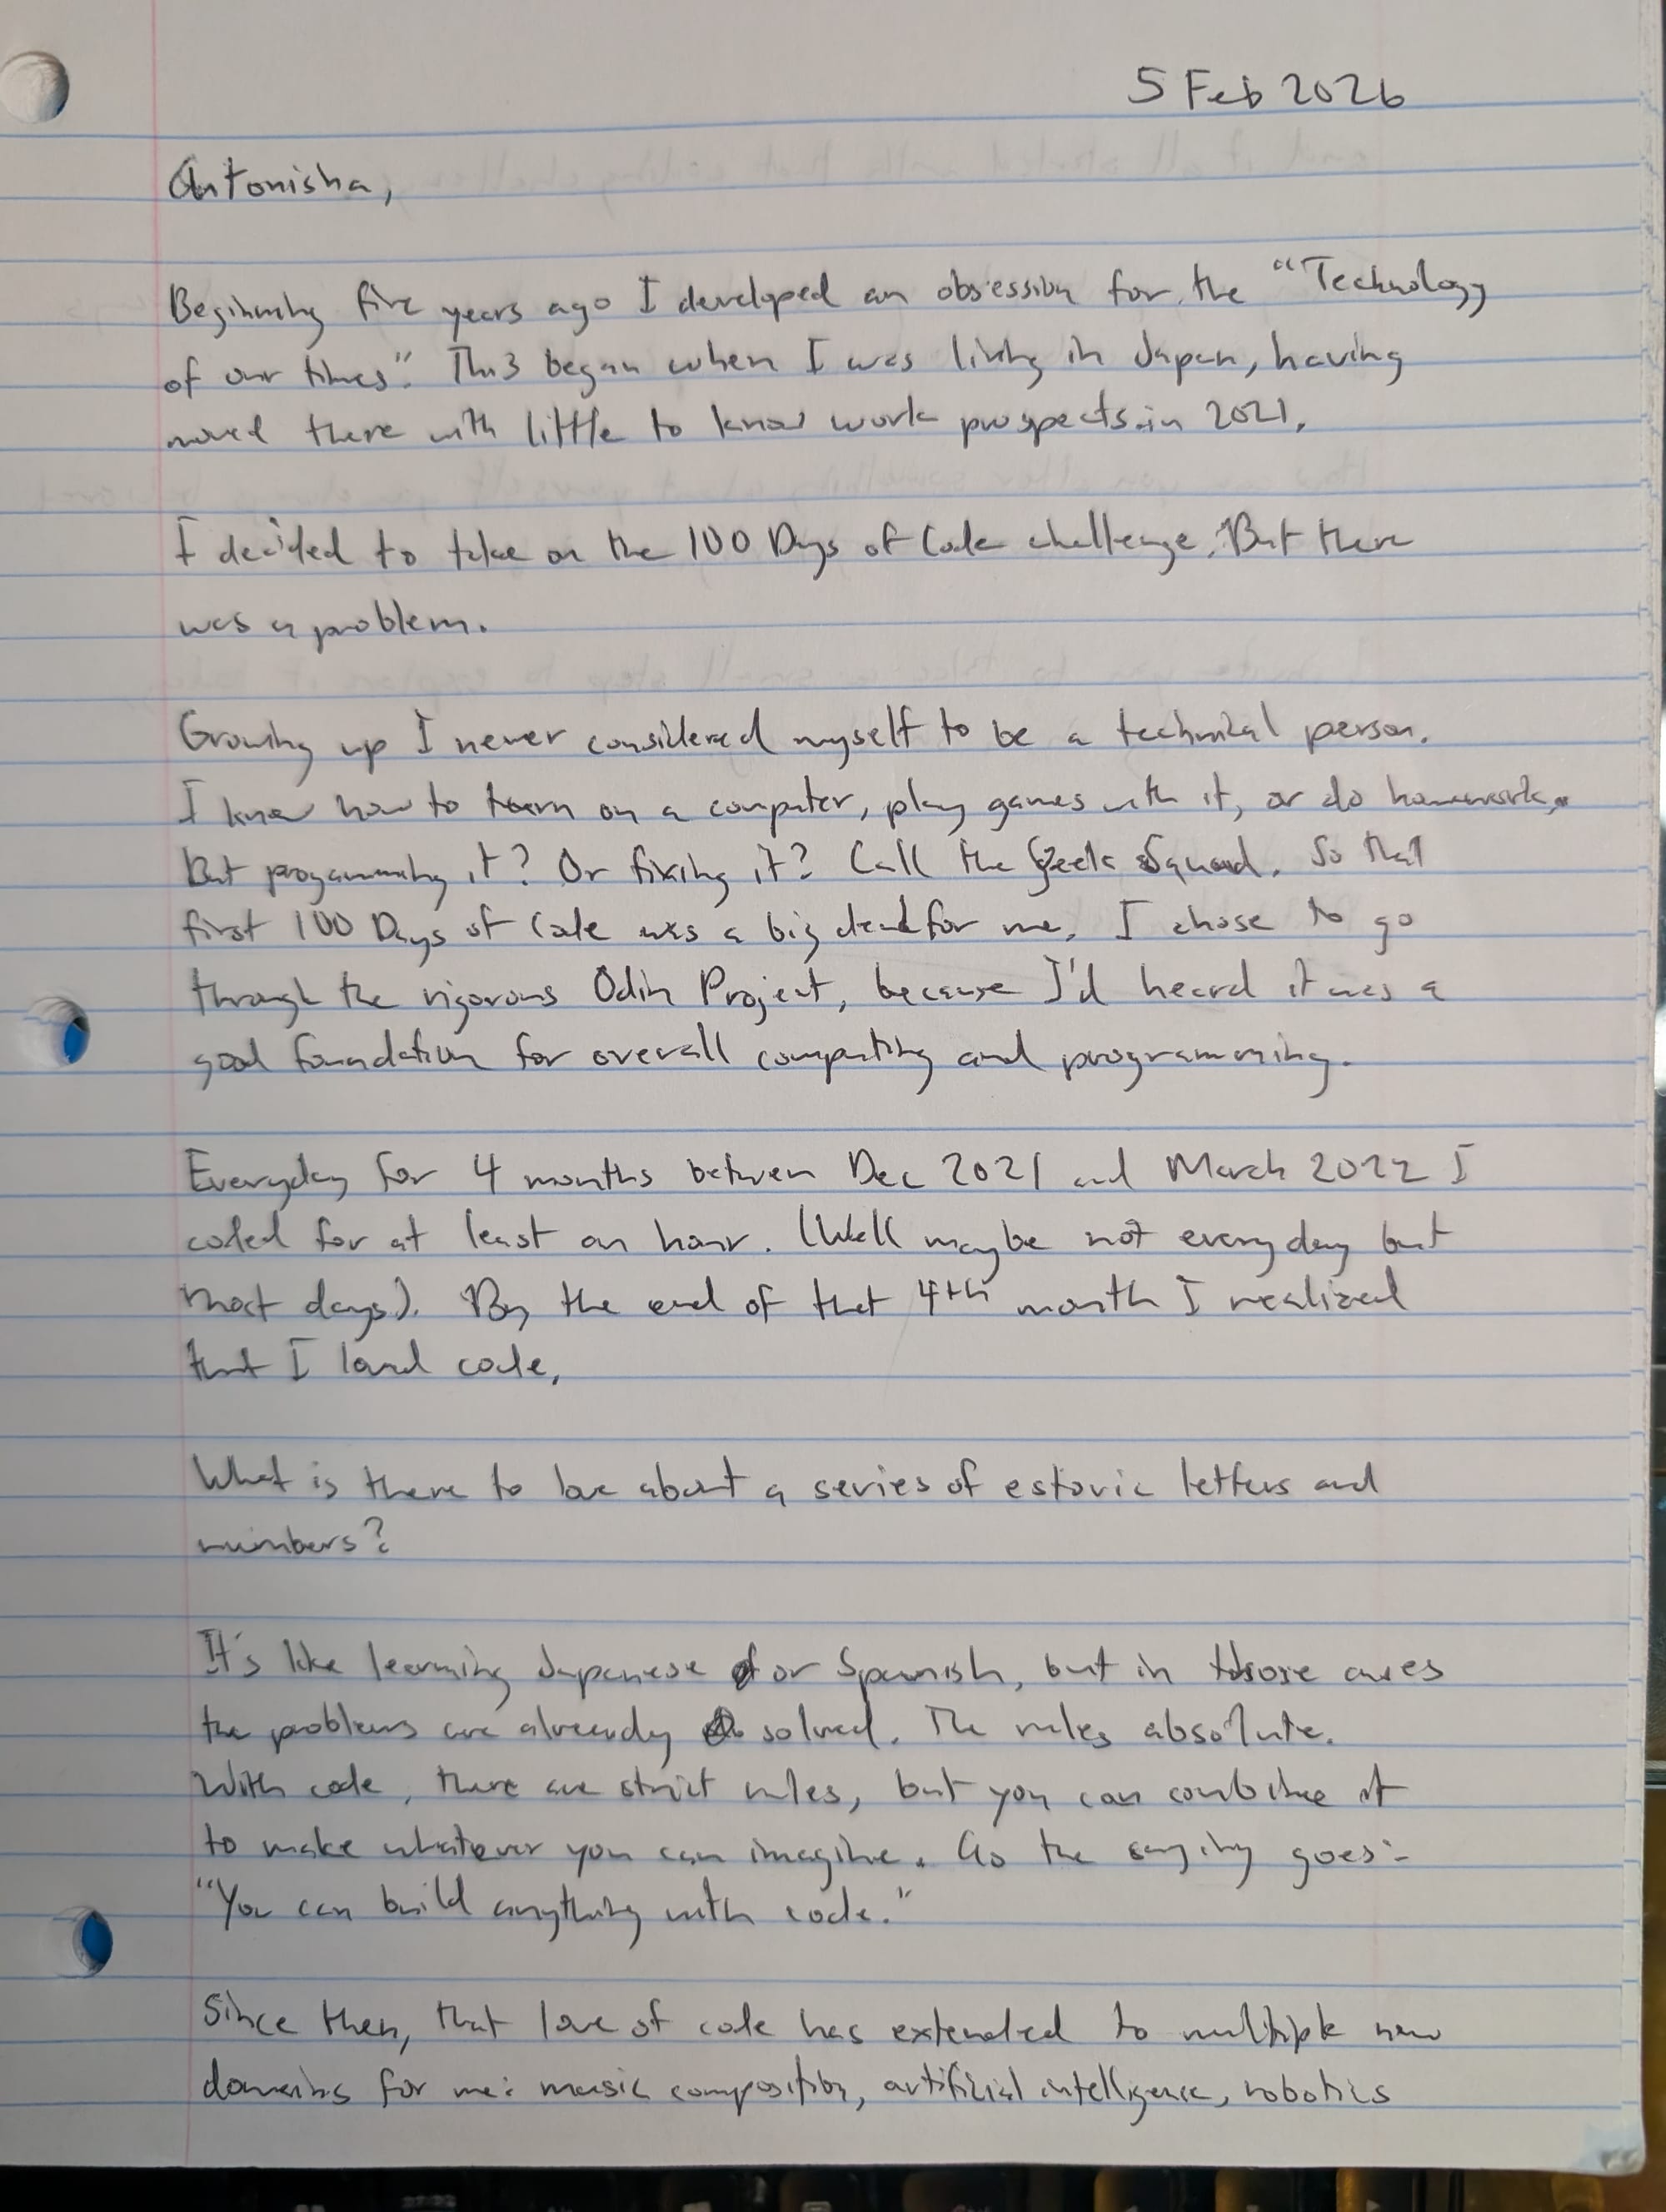 5 Feb 2026
Antonisha,
Beginning five years ago I developed an obsession for the "Technology
of our times". This began when I was living in Japan, having
moved there with little to know work prospects in 2021.
I decided to take on the 100 Days of Code challenge. But there
was a problem.
Growing up I never considered myself to be a technical person.
I knew how to turn on a computer, play games with it, or do homework.
But progamming it? Or fixing it? Call the Geek Squad. So that
first 100 Days of Code was a big deal for me. I chose to go
through the rigorous Odin Project, because I'd heard it was a
good foundation for overall computing and programming.
Everyday for 4 months between Dec 2021 and March 2022 I
coded for at least an hour. (Well maybe not everyday but
most days). By the end of that 4th month I realized
that I loved code.
What is there to love about a series of estoric letters and
numbers?
It's like learning Japanese or Spanish, but in those cases
the problems are already solved. The rules absolute.
With code, there are strict rules, but you can combine it
to make whatever you can imagine. As the saying goes:
"You can build anything with code."
Since then, that love of code has extended to multiple new
domains for me: music composition, artificial intelligence, robotics